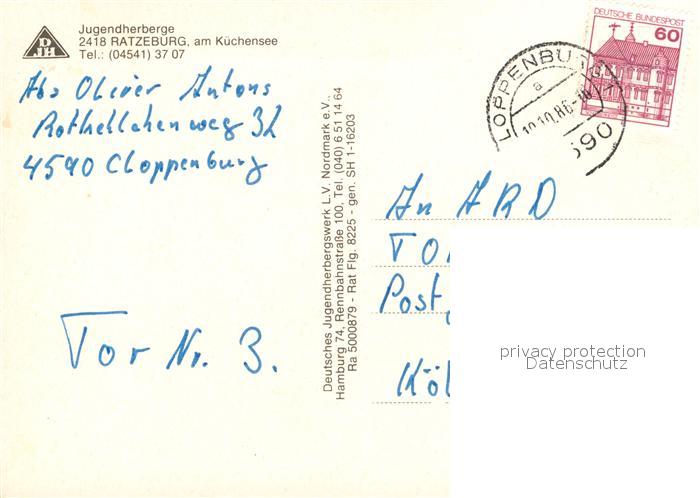 DJH
Jugendherberge
2418 RATZEBURG, am Küchensee
Tel.: (04541) 37 07
Abs Oliver Antons
4590 Cloppenburg
Tor Nr. 3.
Deutsches Jugendherbergswerk L.V. Nordmark e.V.,
Hamburg 74, Rennbahnstraße 100, Tel. (040) 6 51 14 64
Ra 5000879 - Rat Flg. 8225 - gen. SH 1-16203
DEUTSCHE BUNDESPOST
60
LOPPENBU
a
10.10.86
590
An ARD
TO
Post
Köl
privacy protection
Datenschutz